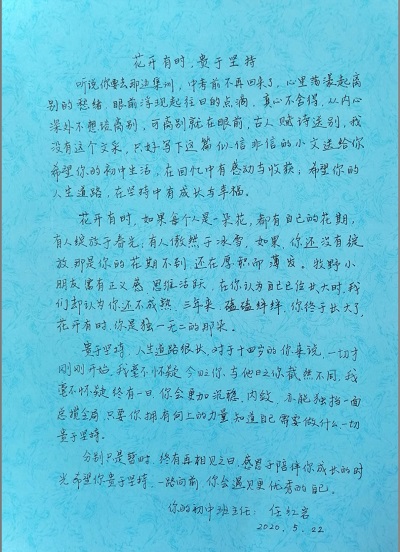 花开有时，贵于坚持
听说你要去那边集训，中考前不再回来了，心里荡漾起离
别的愁绪，眼前浮现起往日的点滴，真心不舍得，从内心
深处不想谈离别，可离别就在眼前，古人赋诗送别，我
没有这个文采，只好写下这篇似信非信的小文送给你
希望你的初中生活，在回忆中有感动与收获；希望你的
人生道路，在坚持中有成长与幸福。
花开有时，如果每个人是一朵花，都有自己的花期，
有人绽放于春光；有人傲然于冰雪，如果，你还没有绽
放那是你的花期不到，还在厚积而薄发。牧野小
朋友富有正义感，思维活跃，在你认为自己已经长大时，我
们却认为你还不成熟，三年来，磕磕绊绊，你终于长大了，
花开有时，你是独一无二的那朵。
贵于坚持，人生道路很长，对于十四岁的你来说，一切才
刚刚开始，我毫不怀疑，今日之你，与他日之你截然不同，我
毫不怀疑，终有一日，你会更加沉稳，内敛，有能独挡一面
，只要你拥有向上的力量，知道自己需要做什么一切
贵于坚持。
分别只是暂时，终有再相见之日，感恩于陪伴你成长的时
光，希望你贵于坚持，一路向前，你会遇见更优秀的自己。
你的初中班主任：任红岩
2020.5.22